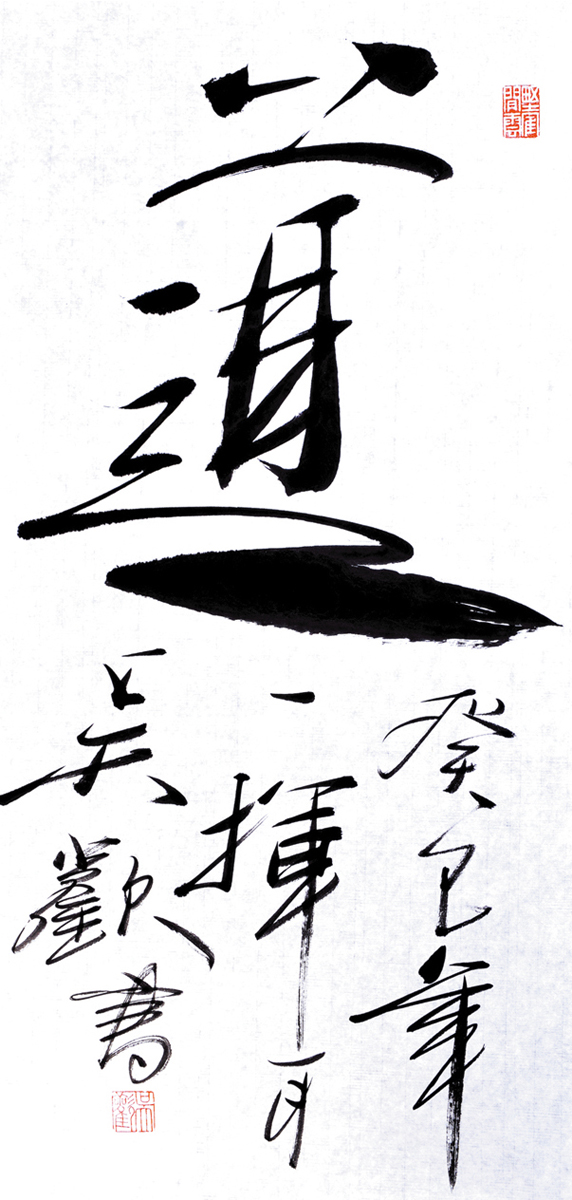 道
癸巳年
一揮
吳歡書
吳歡